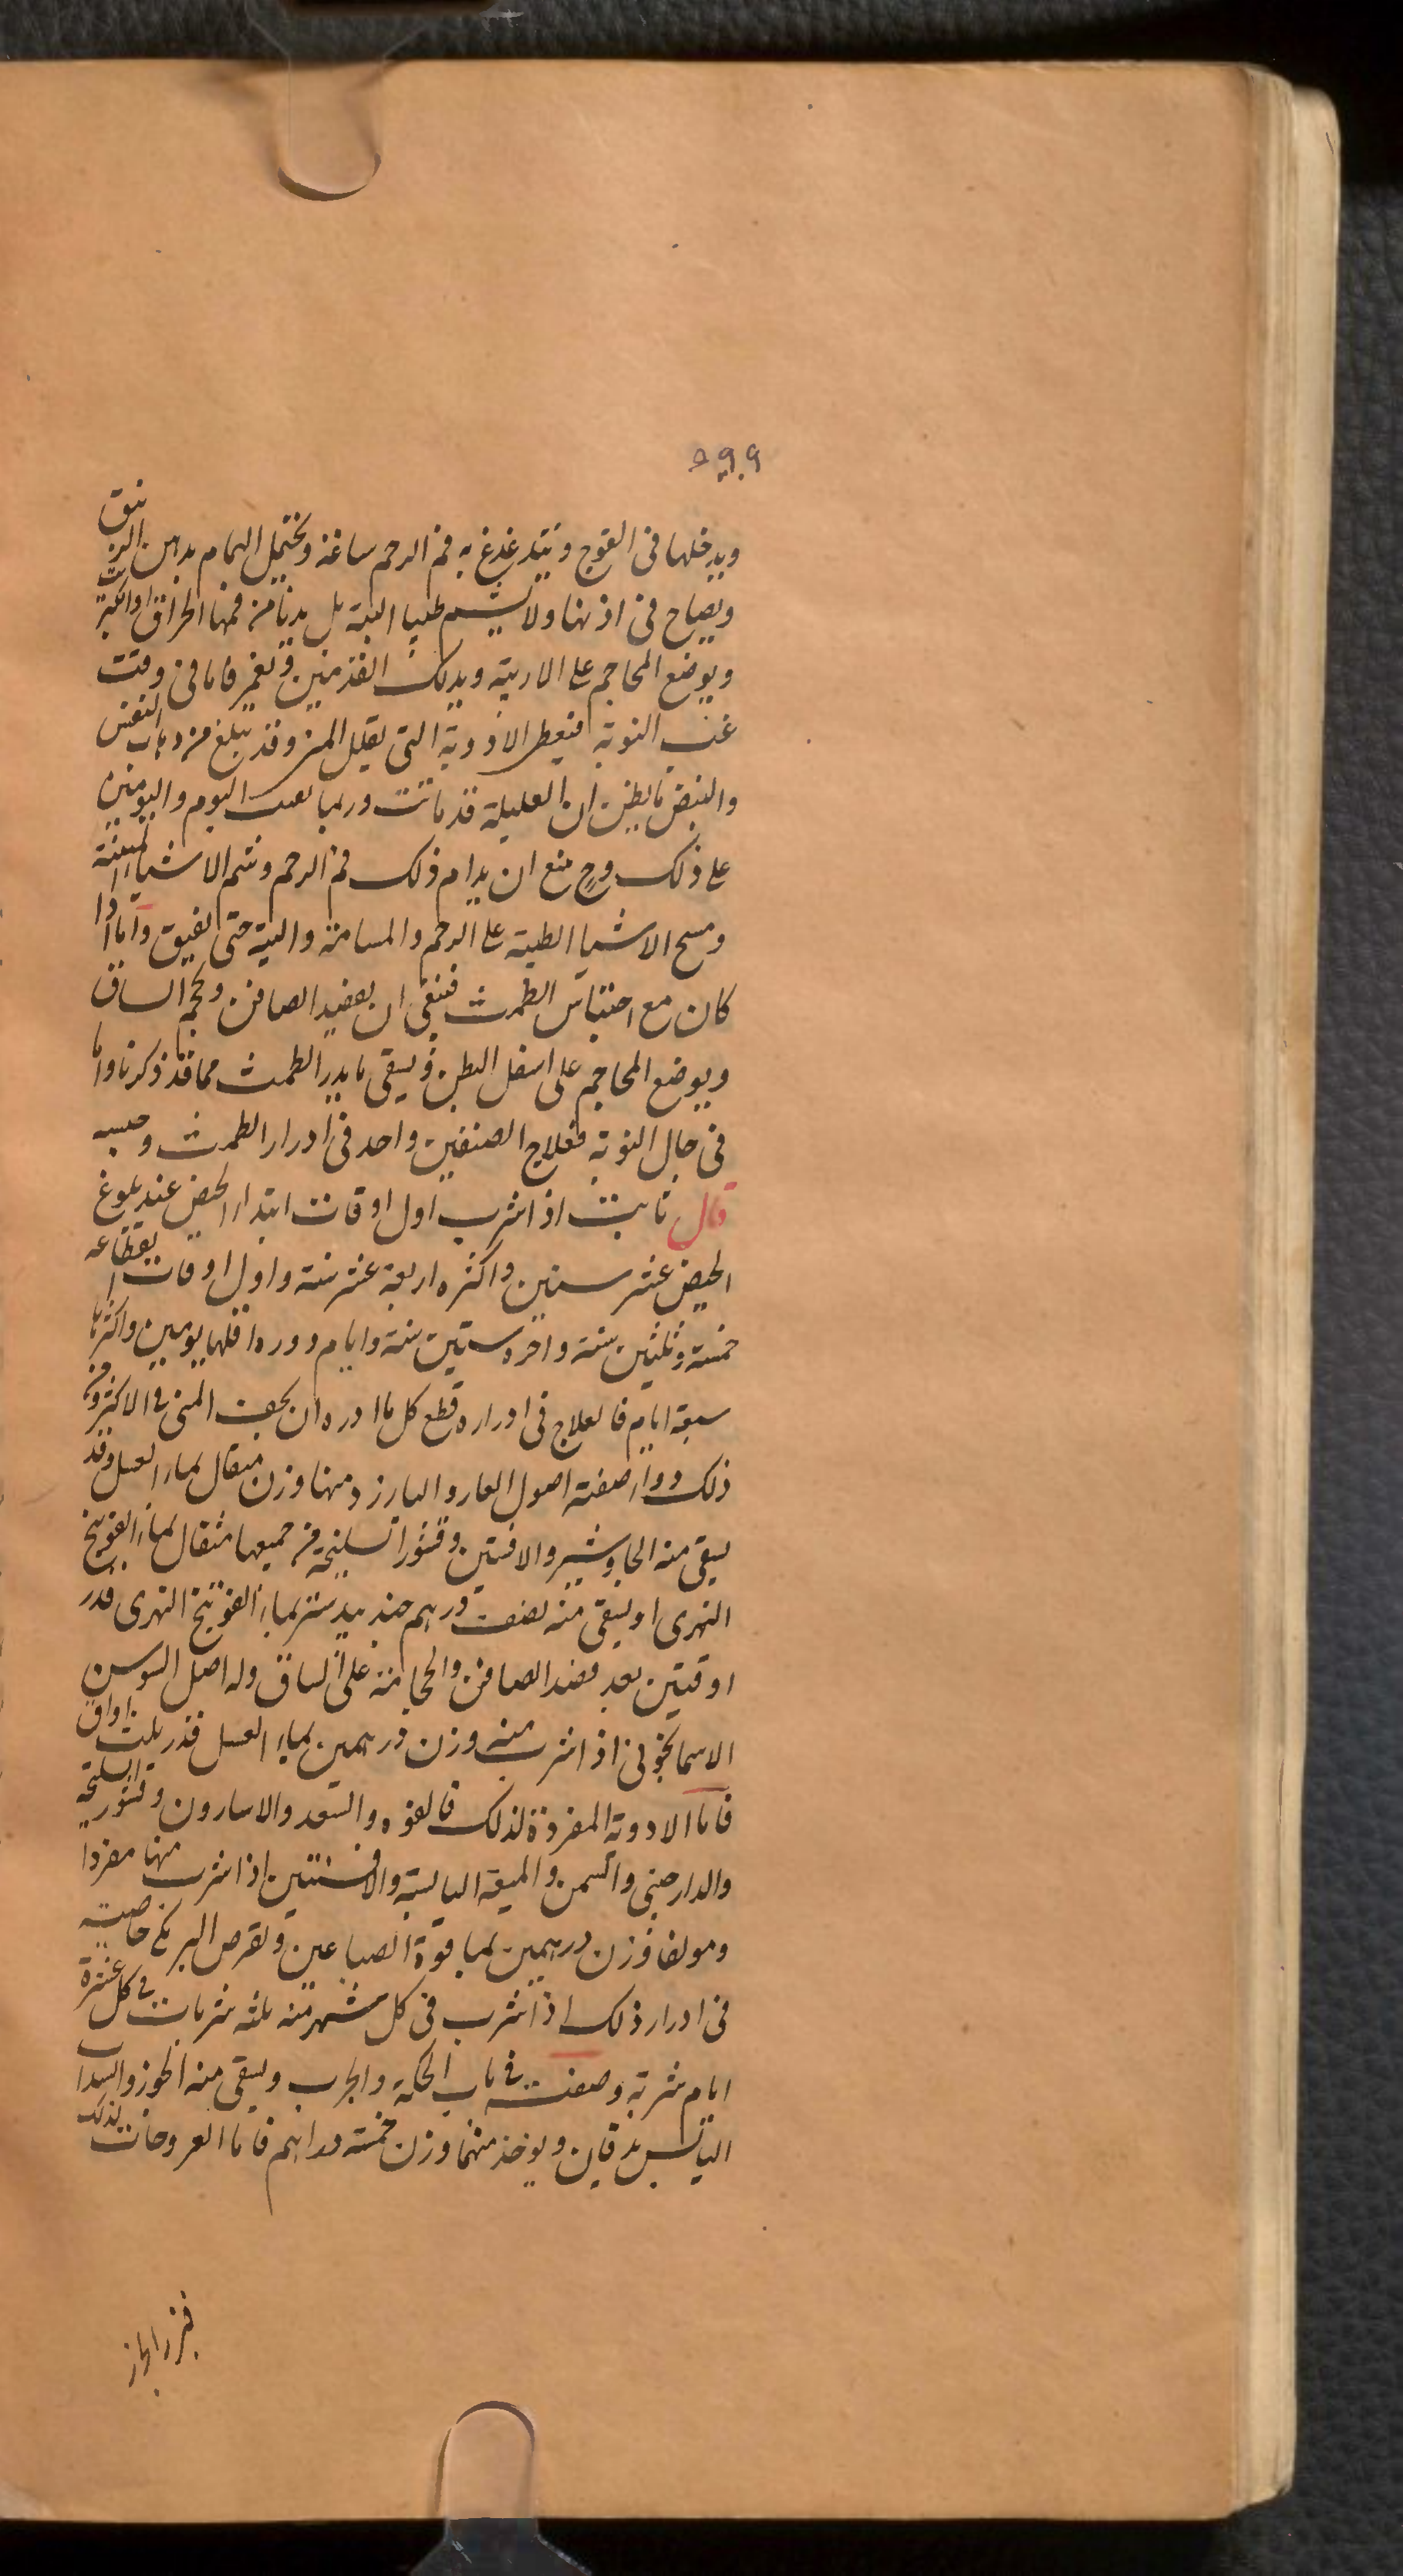 ويدخلها فى الفرج ويتدغدغ به فم الرحم ساعة ويحتمل الحمام بدهن الزنبق
ويصاح فى اذنها ولا يشم طيبا البتة بل يدنا من فمها الحراق او الكبريت
ويوضع المحاجم على الاربية ويدلك القدمين ويغمز فاما فى وقت
غب النوبة فيعطى الادوية التى يقلل المنى وقد يبلغ من ذهاب النفس
والنبض ما يظن ان العليلة قد ماتت وربما بقيت اليوم واليومين
على ذلك وح منع ان يدام ذلك فم الرحم وشم الاشيا المنتنة
ومسح الاشيا الطيبة على الرحم والمسامة والبتة حتى يفيق واما اذا
كان مع احتباس الطمث فينبغى ان يفصد الصافن ويحجم الساق
ويوضع المحاجم على اسفل البطن ويسقى ما يدر الطمث مما قد ذكرنا واما
فى حال النوبة فعلاج الصنفين واحد فى ادرار الطمث وحبسه
قال ثابت اذا شرب اول اوقات ابتداء الحيض عند بلوغ
الحيض عشر سنين واكثره اربعة عشر سنة واول اوقات انقطاعه
خمسة وثلثين سنة واخره ستين سنة وايام دوره اقلها يومين واكثرها
سبعة ايام فالعلاج فى ادراره قطع كل ما ادره ان يجفف المنى فى الاكثر ومن
ذلك دواء صفته اصول الغار والبارزد منها وزن مثقال بماء العسل وقد
يسقى منه الجاوشير والافسنتين وقشور السليخة من جميعها مثقال بماء الفوتنج
النهرى او يسقى منه نصف درهم جندبيدستر بماء الفوتنج النهرى قدر
اوقيتين بعد فصد الصافن والحجامة على الساق وله اصل السوسن
الاسمانجونى اذا شرب منه وزن درهمين بماء العسل قدر ثلث اواق
فاما الادوية المفردة لذلك فالفوه والسعد والاسارون وقشور السليخة
والدارصينى والسمن والميعة اليابسة والافسنتين اذا شرب منها مفردا
ومولفا وزن درهمين بما قوة الصباغين ولقرص البرمكى خاصية
فى ادرار ذلك اذا شرب فى كل شهر منه ثلثه شربات فى كل عشرة
ايام شربة وصفت فى باب الحكة والجرب ويسقى منه الجوز والسداب
اليابس يدقان ويوخذ منهما وزن خمسة دراهم فاما الفروخات لذلك